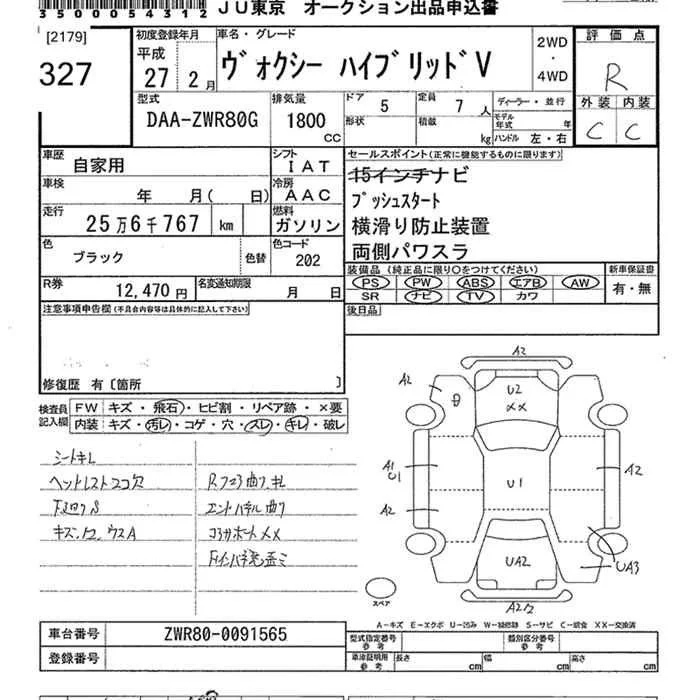 35005431 2 JU東京 オークション出品申込書
[2179]
327
初度登録年月
平成
27 年 2 月
車名・グレード
ヴォクシー ハイブリッドV
2WD
・
4WD
評価点
R
外装 内装
C C
型式
DAA-ZWR80G
排気量
1800 CC
ドア
5
定員
7 人
ディーラー・並行
形状
積載
kg
モデル年式 年
ハンドル 左・右
車歴
自家用
シフト
IAT
車検
年 月( 日)
冷房
AAC
走行
25万6千767 km
燃料
ガソリン
色
ブラック
色替
色コード
202
R券
12,470円
名変通知期限
月 日
セールスポイント(正常に機能するものに限ります)
15インチナビ
プッシュスタート
横滑り防止装置
両側パワスラ
装備品 (純正品に限り○をつけてください)
新車保証書
PS PW ABS エアB AW
SR ナビ TV カワ
有・無
後日品
注意事項申告欄(不具合内容等は具体的に記入して下さい)
修復歴 有〔箇所 〕
検査員記入欄
FW キズ・飛石・ヒビ割・リペア跡・×要
内装 キズ・汚レ・コゲ・穴・スレ・キレ・破レ
シートキレ
ヘッドレスト2コ欠
下廻りS
キズ.A2.ウスA
Rフェンダ曲り.キレ
エンドパネル曲り
コアサポートXX
A2
A2
U2
XX
A1
U1
A2
U1
A2
UA2
UA3
A2
スペア
A-キズ E-エクボ U-凹み W-補修跡 S-サビ C-腐食 XX-交換済
車台番号
ZWR80-0091565
登録番号
型式指定番号
参考
類別区分番号
参考
車庫証明用
参考
長さ
cm
幅
cm
高さ
cm